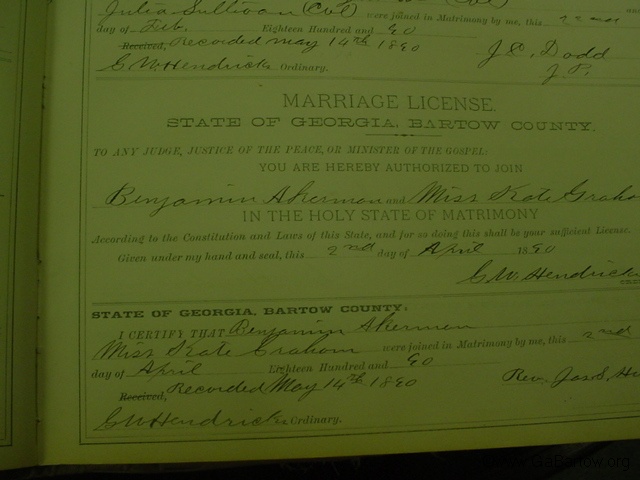 Julia Sullivan (Col) were joined in Matrimony by me, this 22nd
day of Feb. Eighteen Hundred and 90
Received, Recorded May 14th 1890 J. C. Dodd
G. W. Hendricks Ordinary. J. P.
MARRIAGE LICENSE.
STATE OF GEORGIA, BARTOW COUNTY.
TO ANY JUDGE, JUSTICE OF THE PEACE, OR MINISTER OF THE GOSPEL:
YOU ARE HEREBY AUTHORIZED TO JOIN
Benjamin Akerman and Miss Kate Graha
IN THE HOLY STATE OF MATRIMONY
According to the Constitution and Laws of this State, and for so doing this shall be your sufficient License.
Given under my hand and seal, this 2nd day of April 1890
G. W. Hendricks
STATE OF GEORGIA, BARTOW COUNTY:
I CERTIFY THAT Benjamin Akerman
Miss Kate Graham were joined in Matrimony by me, this 2nd
day of April Eighteen Hundred and 90
Received, Recorded May 14th 1890 Rev. Jas. S. H
G W Hendricks Ordinary.